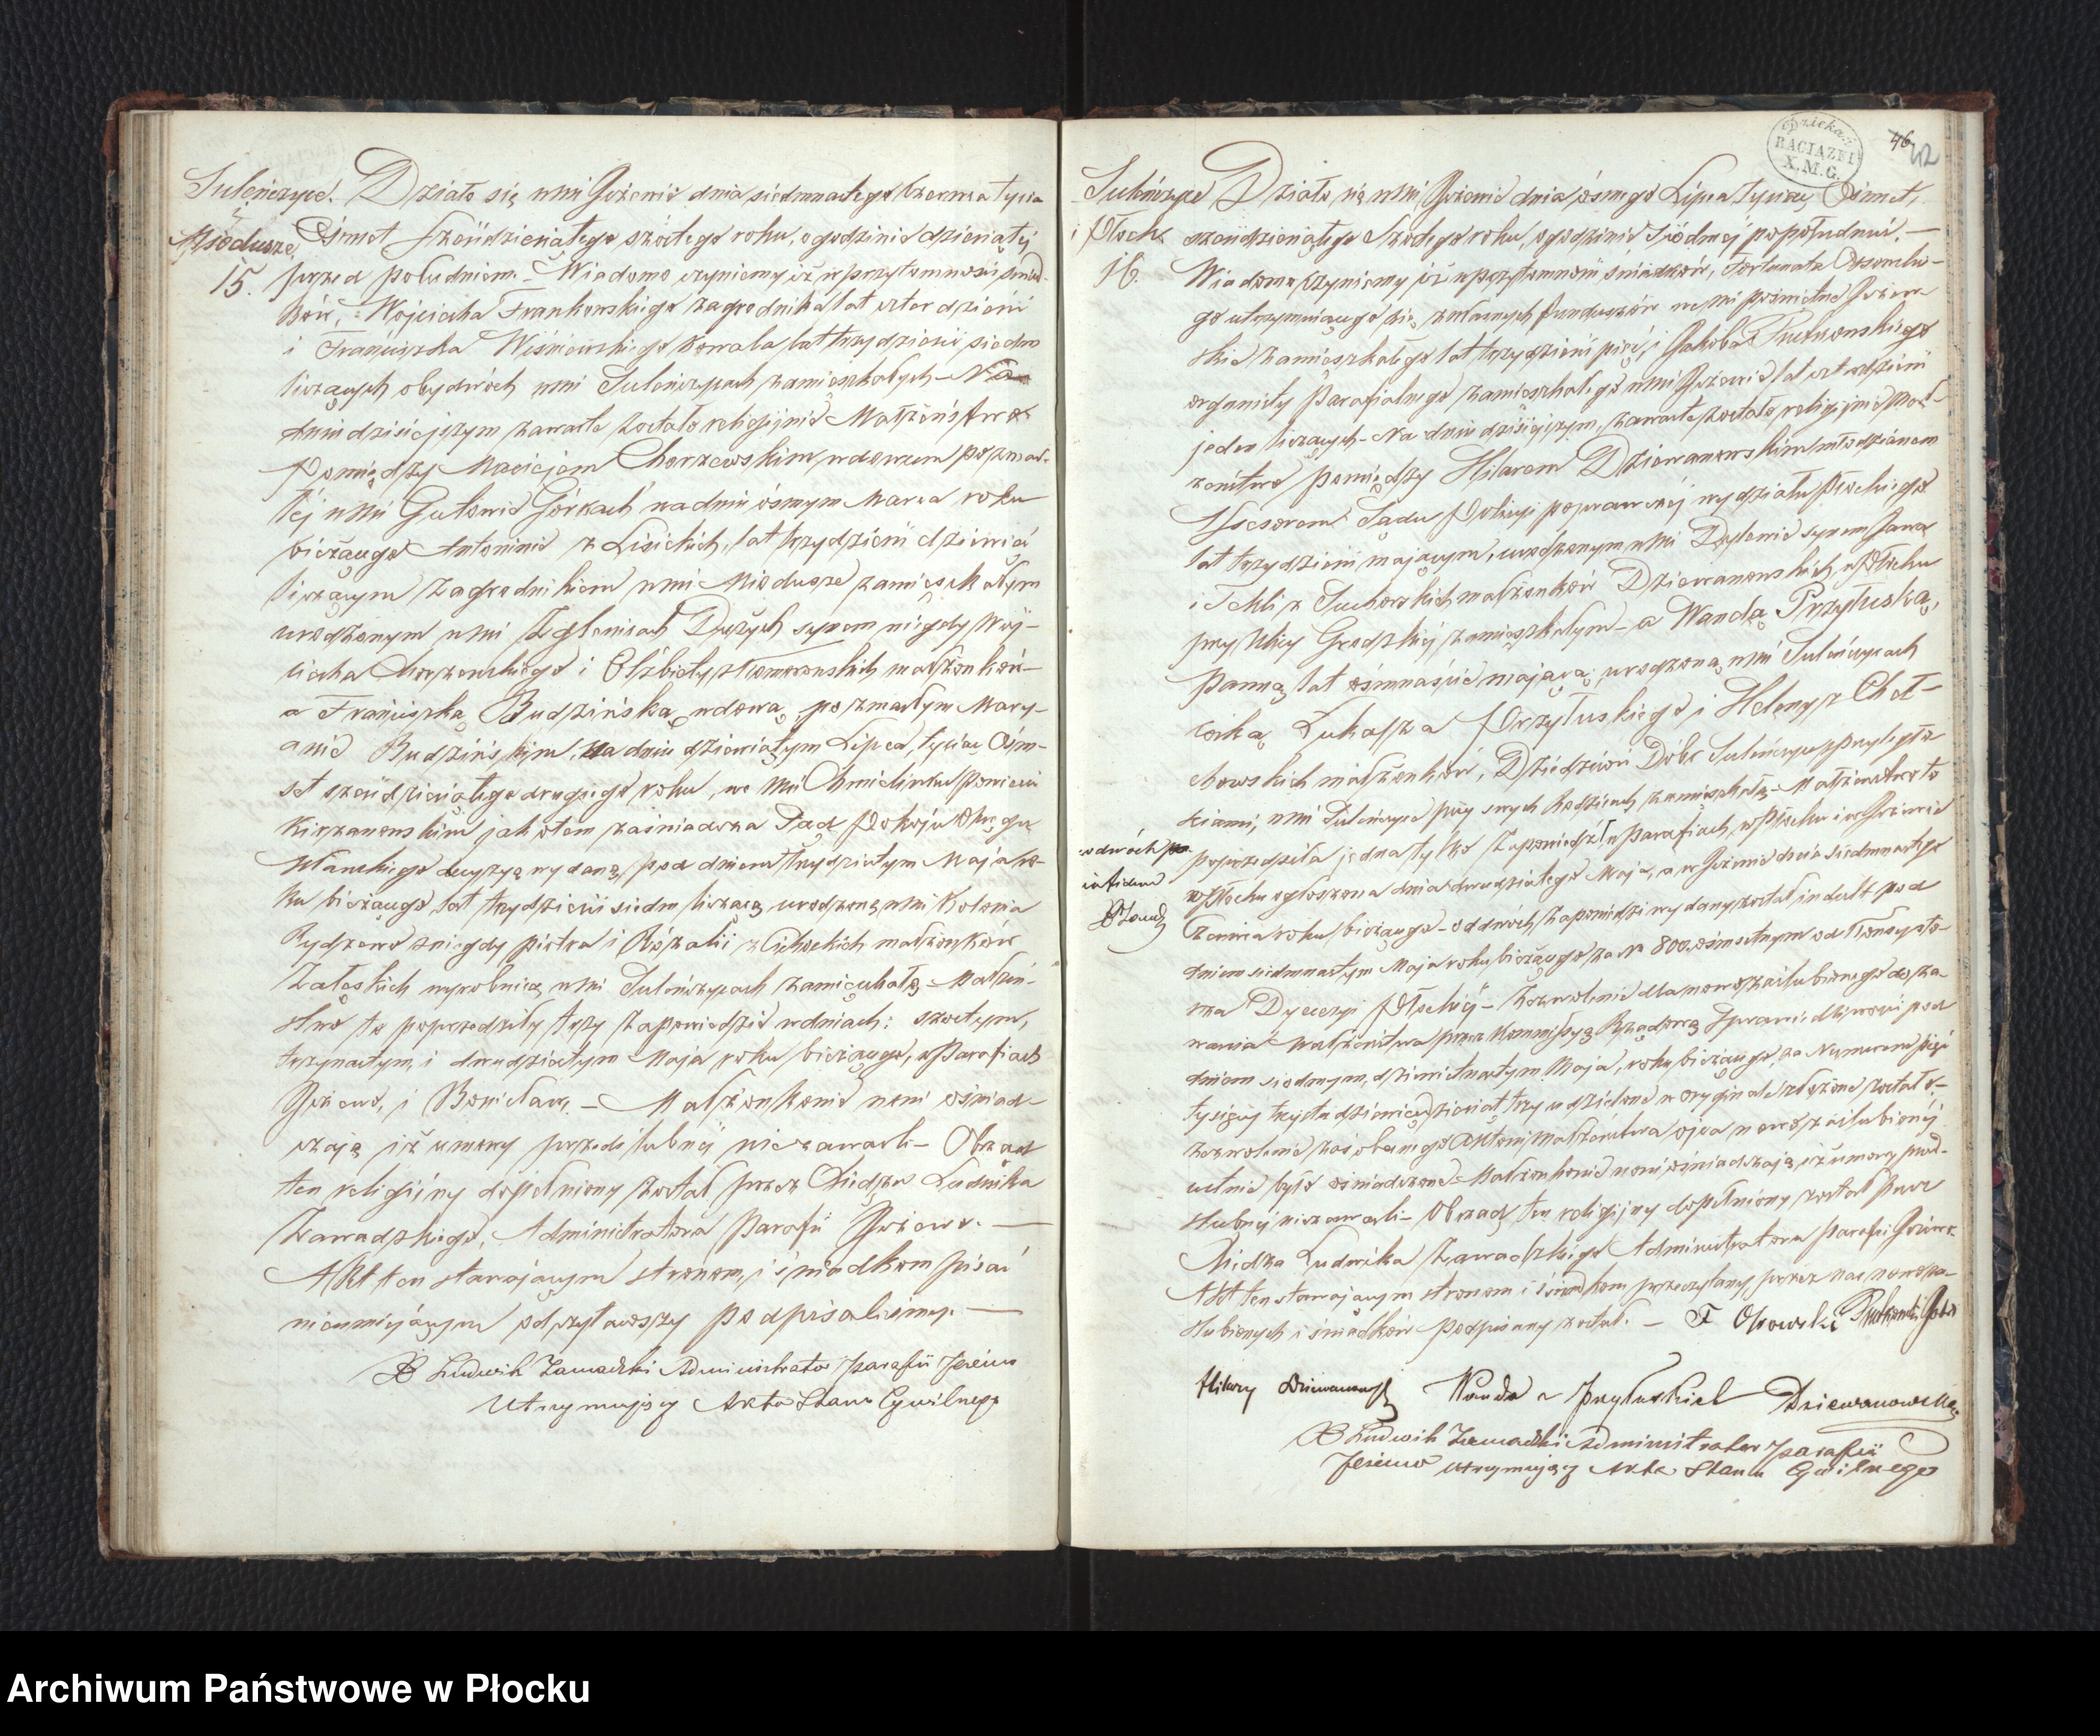 Suleńczyce.
i
Miodusze
15.
Działo się w wsi Jeżewie dnia siedmnastego Czerwca tysiąc
Ośmset Sześćdziesiątego szóstego roku, o godzinie dziewiątej
przed południem. Wiadomo czyniemy iż w przytomności świad-
ków, Wojciecha Frankowskiego zagrodnika lat czterdzieści
i Franciszka Wiśniewskiego kowala lat trzydzieści siedm
liczących obydwóch w wsi Suleńczycach zamieszkałych – Na
dniu dzisiejszym zawarte zostało religijnie Małżeństwo
Pomiędzy Maciejem Chorzewskim wdowcem po zmar-
łéj w wsi Gutowie Górkach na dniu ósmym Marca roku
bieżącego Antoninie z Lisickich, lat trzydzieści dziewięć
liczącym Zagrodnikiem w wsi Miodusze zamieszkałym
urodzonym w wsi Zglenicach Dużych synem niegdy Woj-
ciecha Chorzewskiego i Elżbiety z małżonków
a Franciszką Budzińską wdową po zmarłym Mary-
anie Budzińskim, na dniu dziewiątym Lipca, tysiąc Ośm-
set sześćdziesiątego drugiego roku, we wsi Powiecie
jak o tem zaświadcza Sąd Pokoju Okręgu
Mławskiego decyzyą wydaną pod dniem trzydziestym Maja ro-
ku bieżącego, lat trzydzieści siedm liczącą, urodzoną w wsi Kolonia
Rydzewo z niegdy Piotra i Rózalii z Cichockich małżonków
Załęskich wyrobnicą w wsi Suleńczycach zamieszkałą – Małżeń-
stwo to poprzedziły trzy Zapowiedzie w dniach: szóstym,
trzynastym, i dwudziestym Maja roku bieżącego, w Parafiach
Jeżewo, i Bonisław, – Małżonkowie nowi oświad-
czają iż umowy przedślubnéj niezawarli – Obrząd
ten religijny dopełniony został przez Xiędza Ludwika
Zawadzkiego, Administratora Parafii Jeżewo. –
Akt ten stawającym stronom, i świadkom pisać
nieumiejącym odczytawszy podpisaliśmy. –
X Ludwik Zawadzki Administrator parafii Jeżewo
Utrzymujący Akta Stanu Cywilnego
Dziekań:
RACIĄŻKI
X.M.G.
46
42
Suleńczyce
i Płock
16.
Działo się w wsi Jeżewie dnia ósmego Lipca tysiąc Ośmset,
sześćdziesiątego Szóstego roku, o godzinie siódméj popołudniu. –
Wiadomo czyniemy iż w przytomności świadków, Fortunata
go utrzymującego się z własnych funduszów we wsi
zamieszkałego lat trzydzieści pięć, i Jakóba Rutkowskiego
organisty Parafialnego zamieszkałego w wsi Jeżewie lat czterdzieści
jeden liczących – Na dniu dzisiejszym, zawarte zostało religijnie Mał-
żeństwo pomiędzy Hilarem Dziewanowskim młodzianem
Assesorem Sądu Policyi poprawczéj wydziału Płockiego
lat trzydzieści mającym, urodzonym w wsi synem Jana
i Tekli z Suchorskich małżonków Dziewanowskich, w Płocku
przy Ulicy Grodzkiéj zamieszkałym – a Wandą Przyłuską,
Panną, lat ośmnaście mającą, urodzoną w wsi Suleńczycach
córką Łukasza Przyłuskiego i Heleny z Cheł-
chowskich małżonków, Dziedziców Dóbr Suleńczyce z przyległo-
ściami, w wsi Suleńczyce przy swych Rodzicach zamieszkałą – Małżeństwo to
poprzedziła jedna tylko Zapowiedź w Parafiach, w Płocku i w Jeżewie
w Płocku ogłoszona dnia dwudziestego Maja, a w Jeżewie dnia siedmnastego
Czerwca roku bieżącego – od dwóch Zapowiedzi wydany został indult pod
dniem siedmnastym Maja roku bieżącego za N 800. ośmsetnym od Konsysto-
rza Dyecezyi Płockiéj – Zezwolenie dla nowozaślubionego do za-
warcia małżeństwa przez Kommissyą Rządową Sprawiedliwości pod
dniem siedmym, dziewiętnastym Maja, roku bieżącego, za Numerem pięć
tysięcy trzysta dziewięćdziesiąt trzy udzielone w oryginale złożone zostało –
Zezwolenie zaś obecnego Aktowi małżeństwa ojca nowozaślubionéj
ustnie było oświadczone – Małżonkowie nowi oświadczają iż umowy przed-
ślubnéj niezawarli – Obrząd ten religijny dopełniony został przez
Xiędza Ludwika Zawadzkiego Administratora Parafii Jeżewo.
Akt ten stawającym stronom i świadkom przeczytany, przez nas nowoza-
ślubionych i świadków podpisany został. – F Rutkowski Jakób
w dwóch
X Zawadz
Hilary Dziewanowski Wanda z Przyłuskich Dziewanowska
X Ludwik Zawadzki Administrator parafii
Jeżewo utrzymujący Akta Stanu Cywilnego
Archiwum Państwowe w Płocku